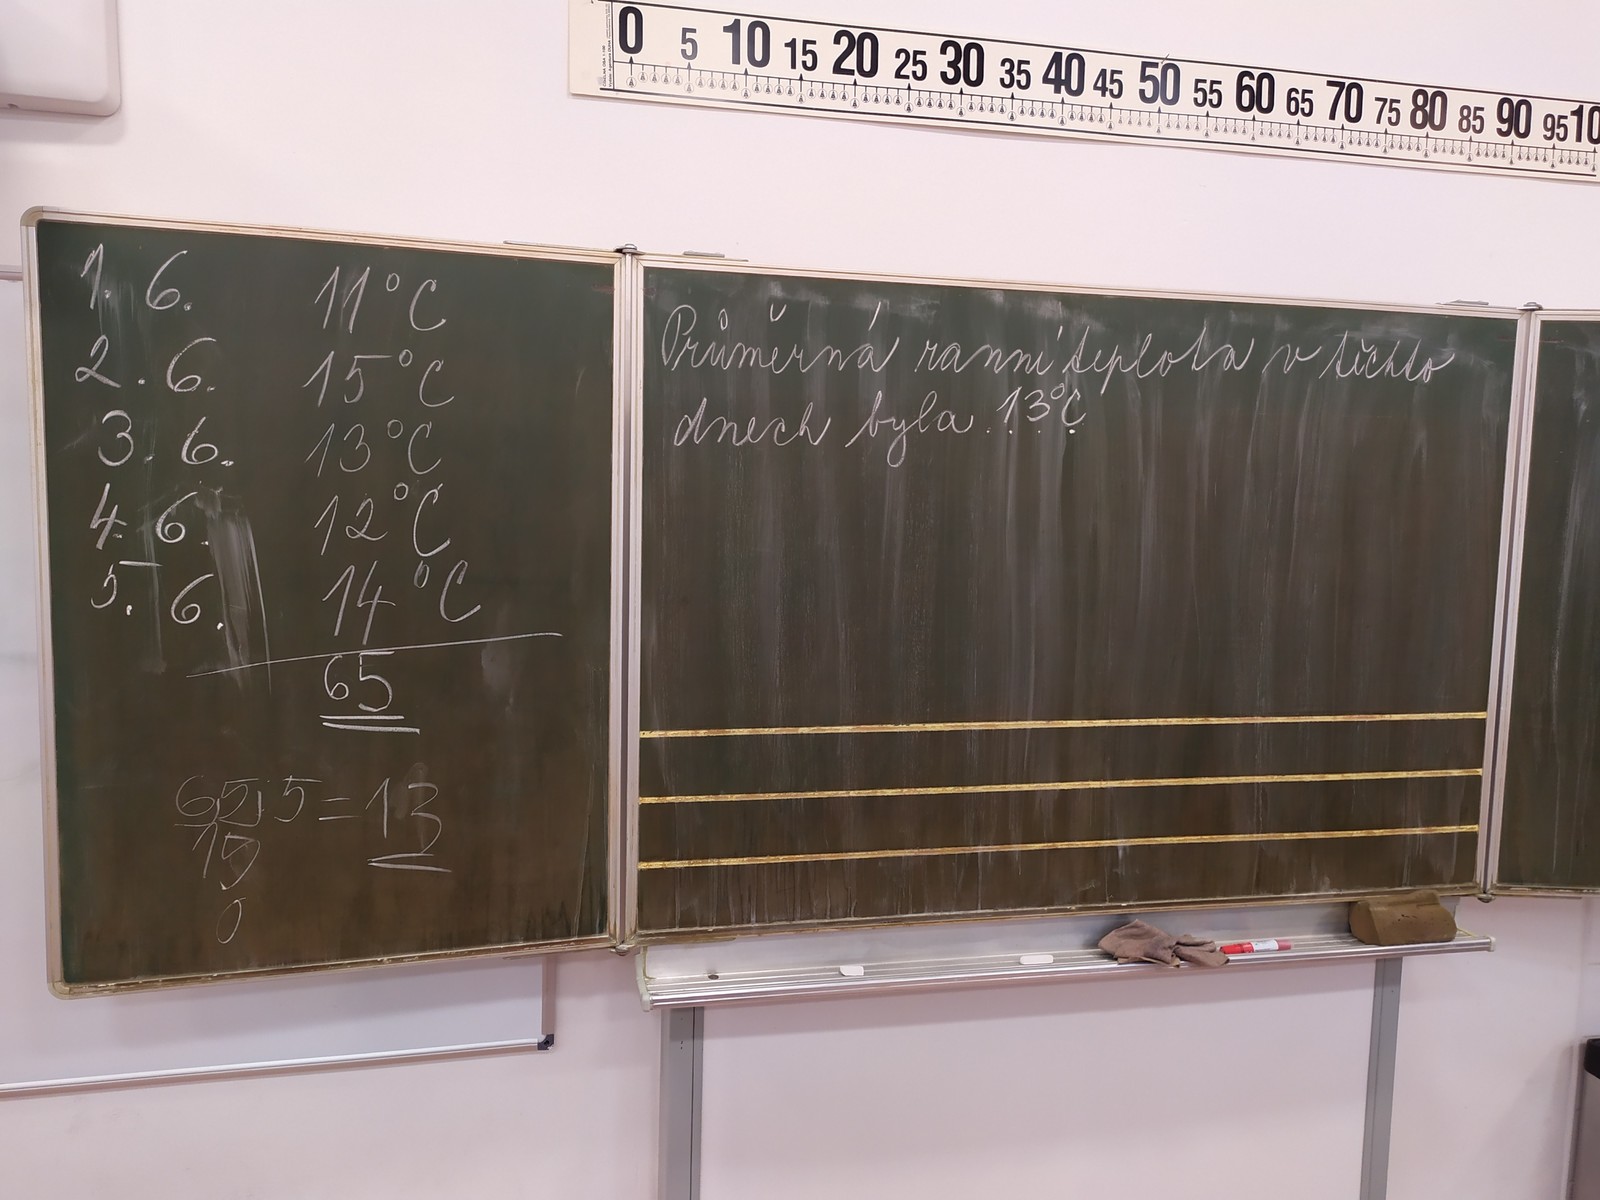 0 5 10 15 20 25 30 35 40 45 50 55 60 65 70 75 80 85 90 95 10
1. 6. 11°C
2. 6. 15°C
3. 6. 13°C
4. 6. 12°C
5. 6. 14°C
65
65:5=13
15
0
Průměrná ranní teplota v těchto
dnech byla 13°C